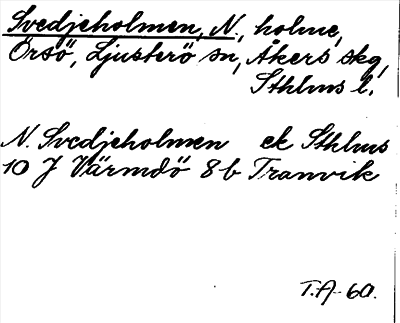 Svedjeholmen, N., holme,
Örsö, Ljusterö sn, Åkers skg,
Sthlms l.
N. Svedjeholmen ek Sthlms
10 J Värmdö 8b Tranvik
T.A-60.